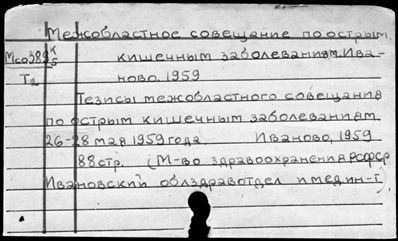 Межобластное совещание по острым
Мсо389 К/5 кишечным заболеваниям. Ива-
Т2 ново. 1959
Тезисы межобластного совещания
по острым кишечным заболеваниям
26-28 мая 1959 года Иваново, 1959
88 стр. (М-во здравоохранения РСФСР
Ивановский облздравотдел и медин-т)